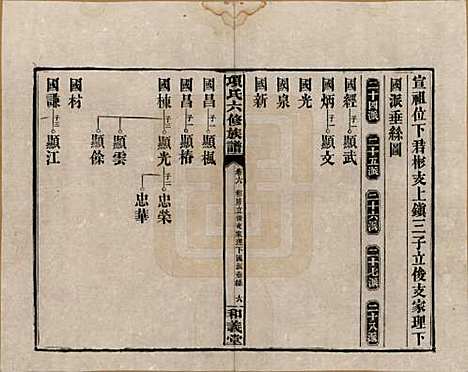 宣祖位下君彬支上鎮三子立俊支家理下
國派垂絲圖
二十四派
二十五派
二十六派
二十七派
二十八派
國經 子一 顯武
國炳 子一 顯文
國光
國泉
國新
項氏六修族譜
卷六
六
和義堂
國昌 子一 顯楓
國昌 子一 顯椿
國棟 子三 顯光 子二 忠榮
忠華
顯雲
顯餘
國材
國謙 子三 顯江